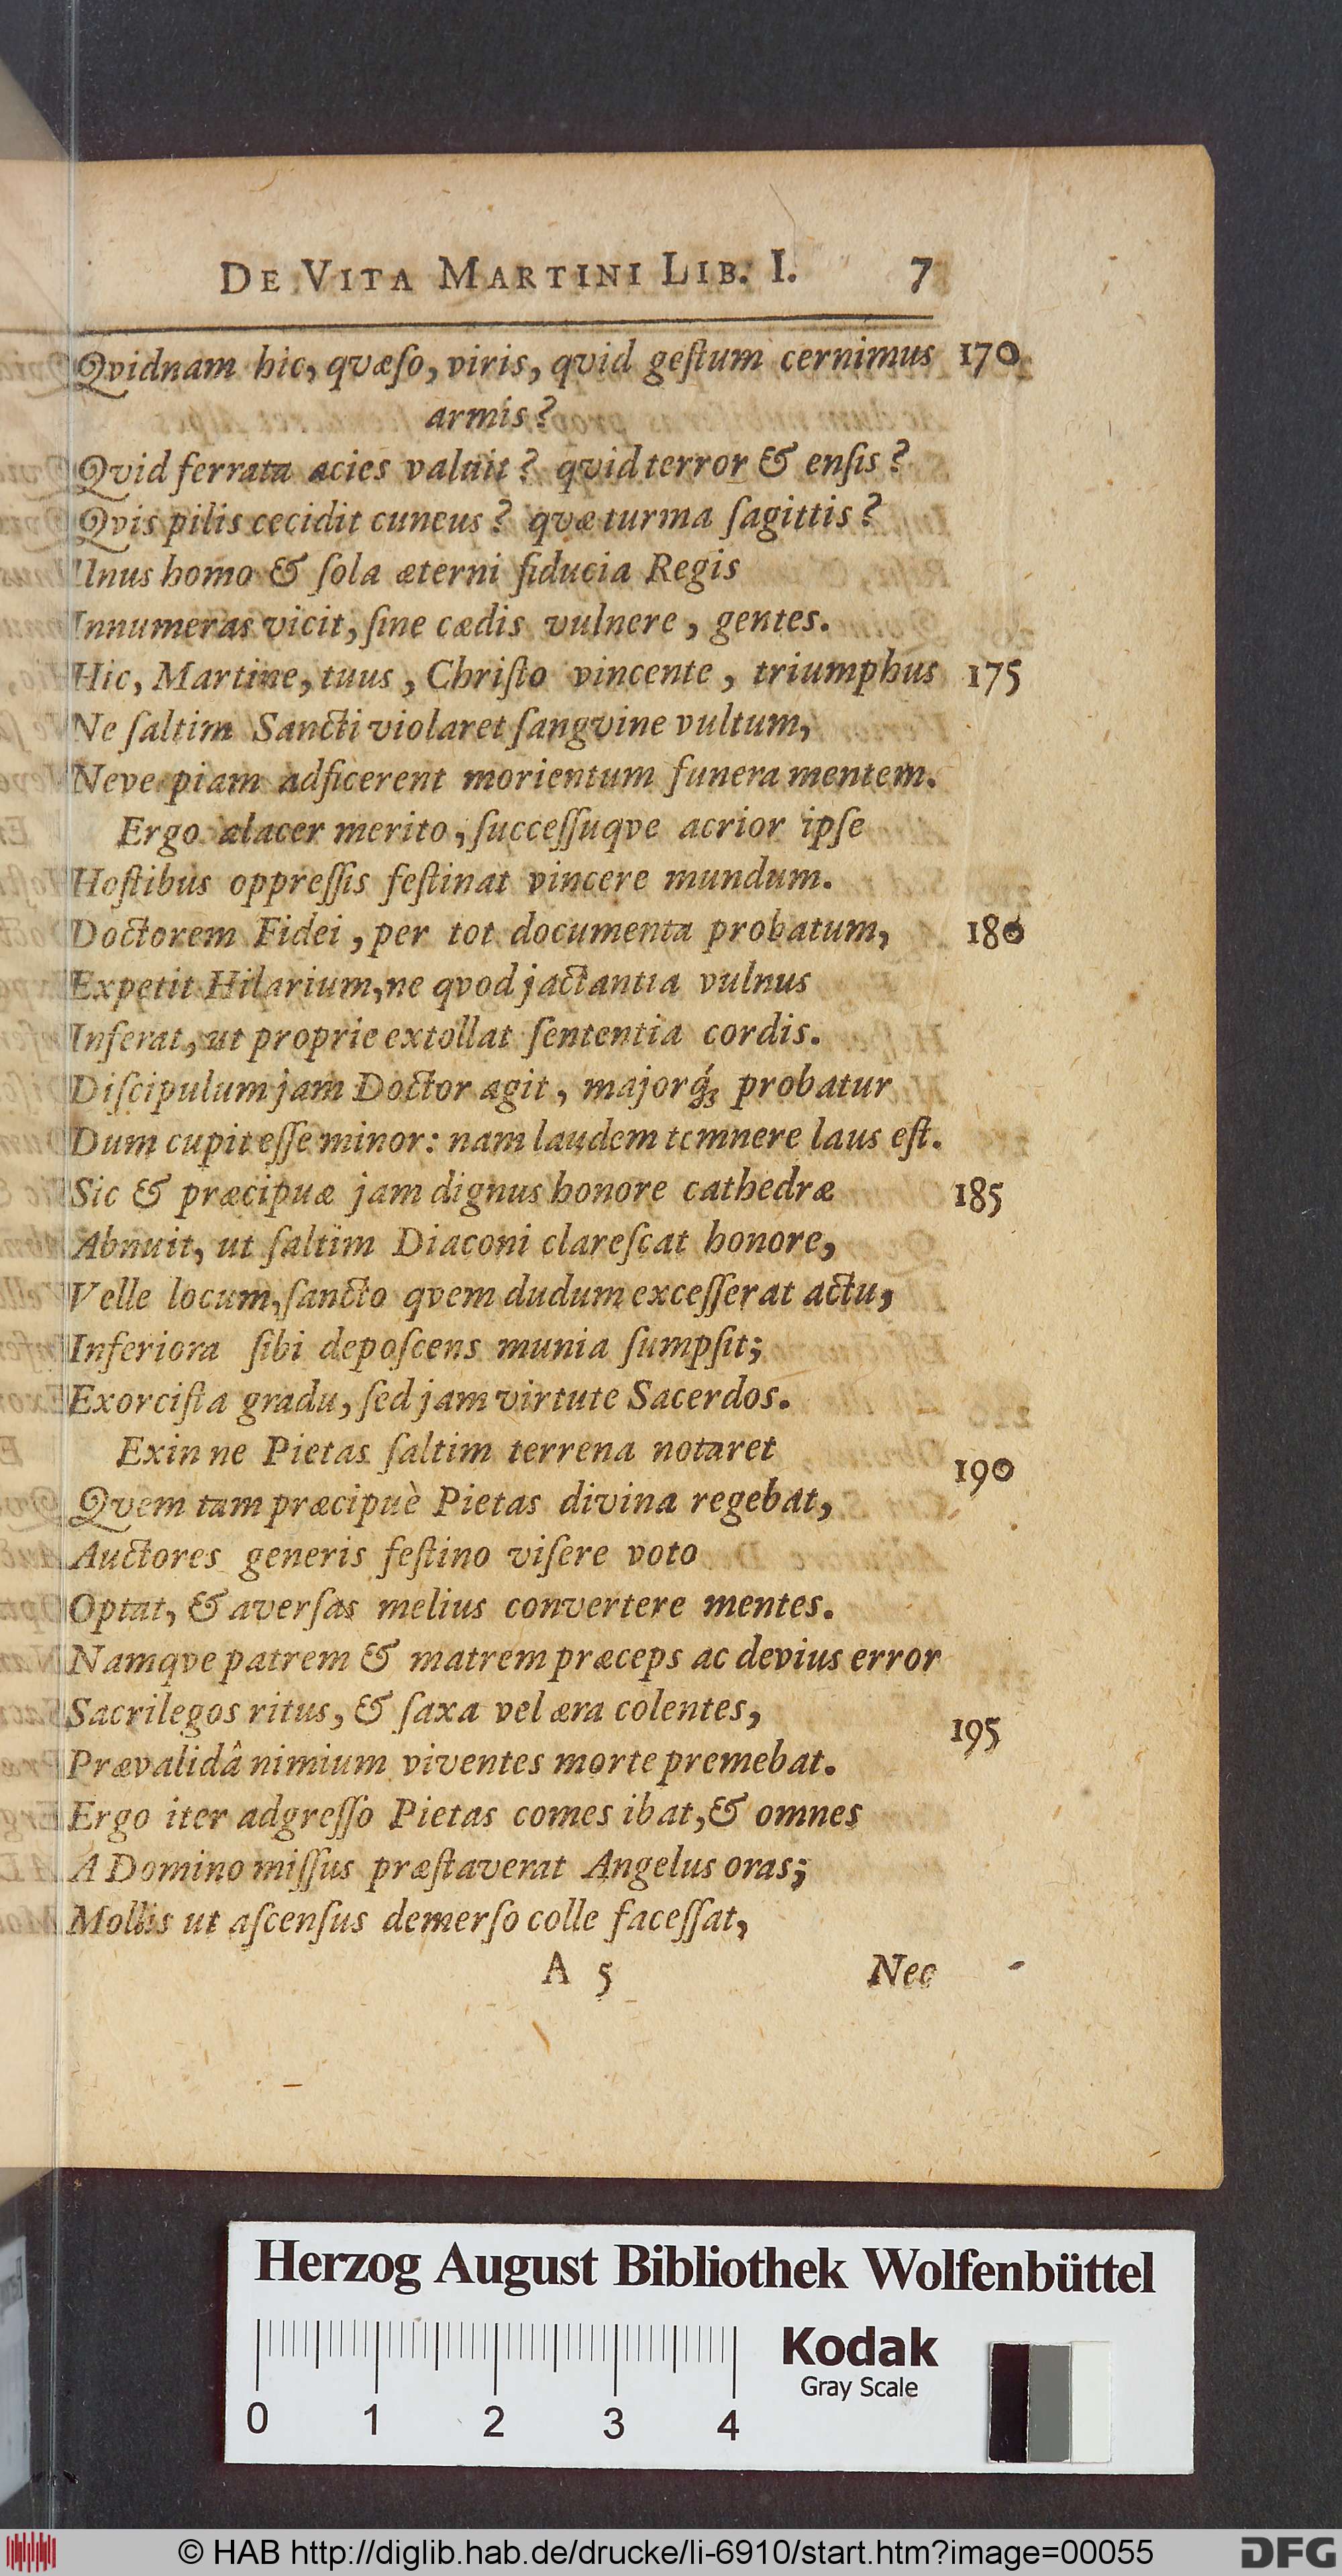 DE VITA MARTINI LIB. I. 7
Qvidnam hic, qvæſo, viris, qvid geſtum cernimus 170
armis?
Qvid ferrata acies valuit? qvid terror & enſis?
Qvis pilis cecidit cuneus? qvæ turma ſagittis?
Unus homo & ſola æterni fiducia Regis
Innumeras vicit, ſine cædis vulnere, gentes.
Hic, Martine, tuus, Chriſto vincente, triumphus 175
Ne ſaltim Sancti violaret ſangvine vultum,
Neve piam adficerent morientum funera mentem.
Ergo alacer merito, ſucceſſuqve acrior ipſe
Hoſtibus oppreſſis feſtinat vincere mundum.
Doctorem Fidei, per tot documenta probatum, 180
Expetit Hilarium, ne qvod jactantia vulnus
Inferat, ut proprie extollat ſententia cordis.
Diſcipulum jam Doctor agit, majorq́; probatur
Dum cupit eſſe minor: nam laudem temnere laus eſt.
Sic & præcipuæ jam dignus honore cathedræ 185
Abnuit, ut ſaltim Diaconi clareſcat honore,
Velle locum, ſancto qvem dudum exceſſerat actu,
Inferiora ſibi depoſcens munia ſumpſit;
Exorciſta gradu, ſed jam virtute Sacerdos.
Exin ne Pietas ſaltim terrena notaret 190
Qvem tam præcipuè Pietas divina regebat,
Auctores generis feſtino viſere voto
Optat, & averſas melius convertere mentes.
Namqve patrem & matrem præceps ac devius error
Sacrilegos ritus, & ſaxa vel æra colentes, 195
Prævalidâ nimium viventes morte premebat.
Ergo iter adgreſſo Pietas comes ibat, & omnes
A Domino miſſus præſtaverat Angelus oras;
Mollis ut aſcenſus demerſo colle faceſſat,
A 5 Nec
Herzog August Bibliothek Wolfenbüttel
Kodak
Gray Scale
0 1 2 3 4
© HAB http://diglib.hab.de/drucke/li-6910/start.htm?image=00055 DFG